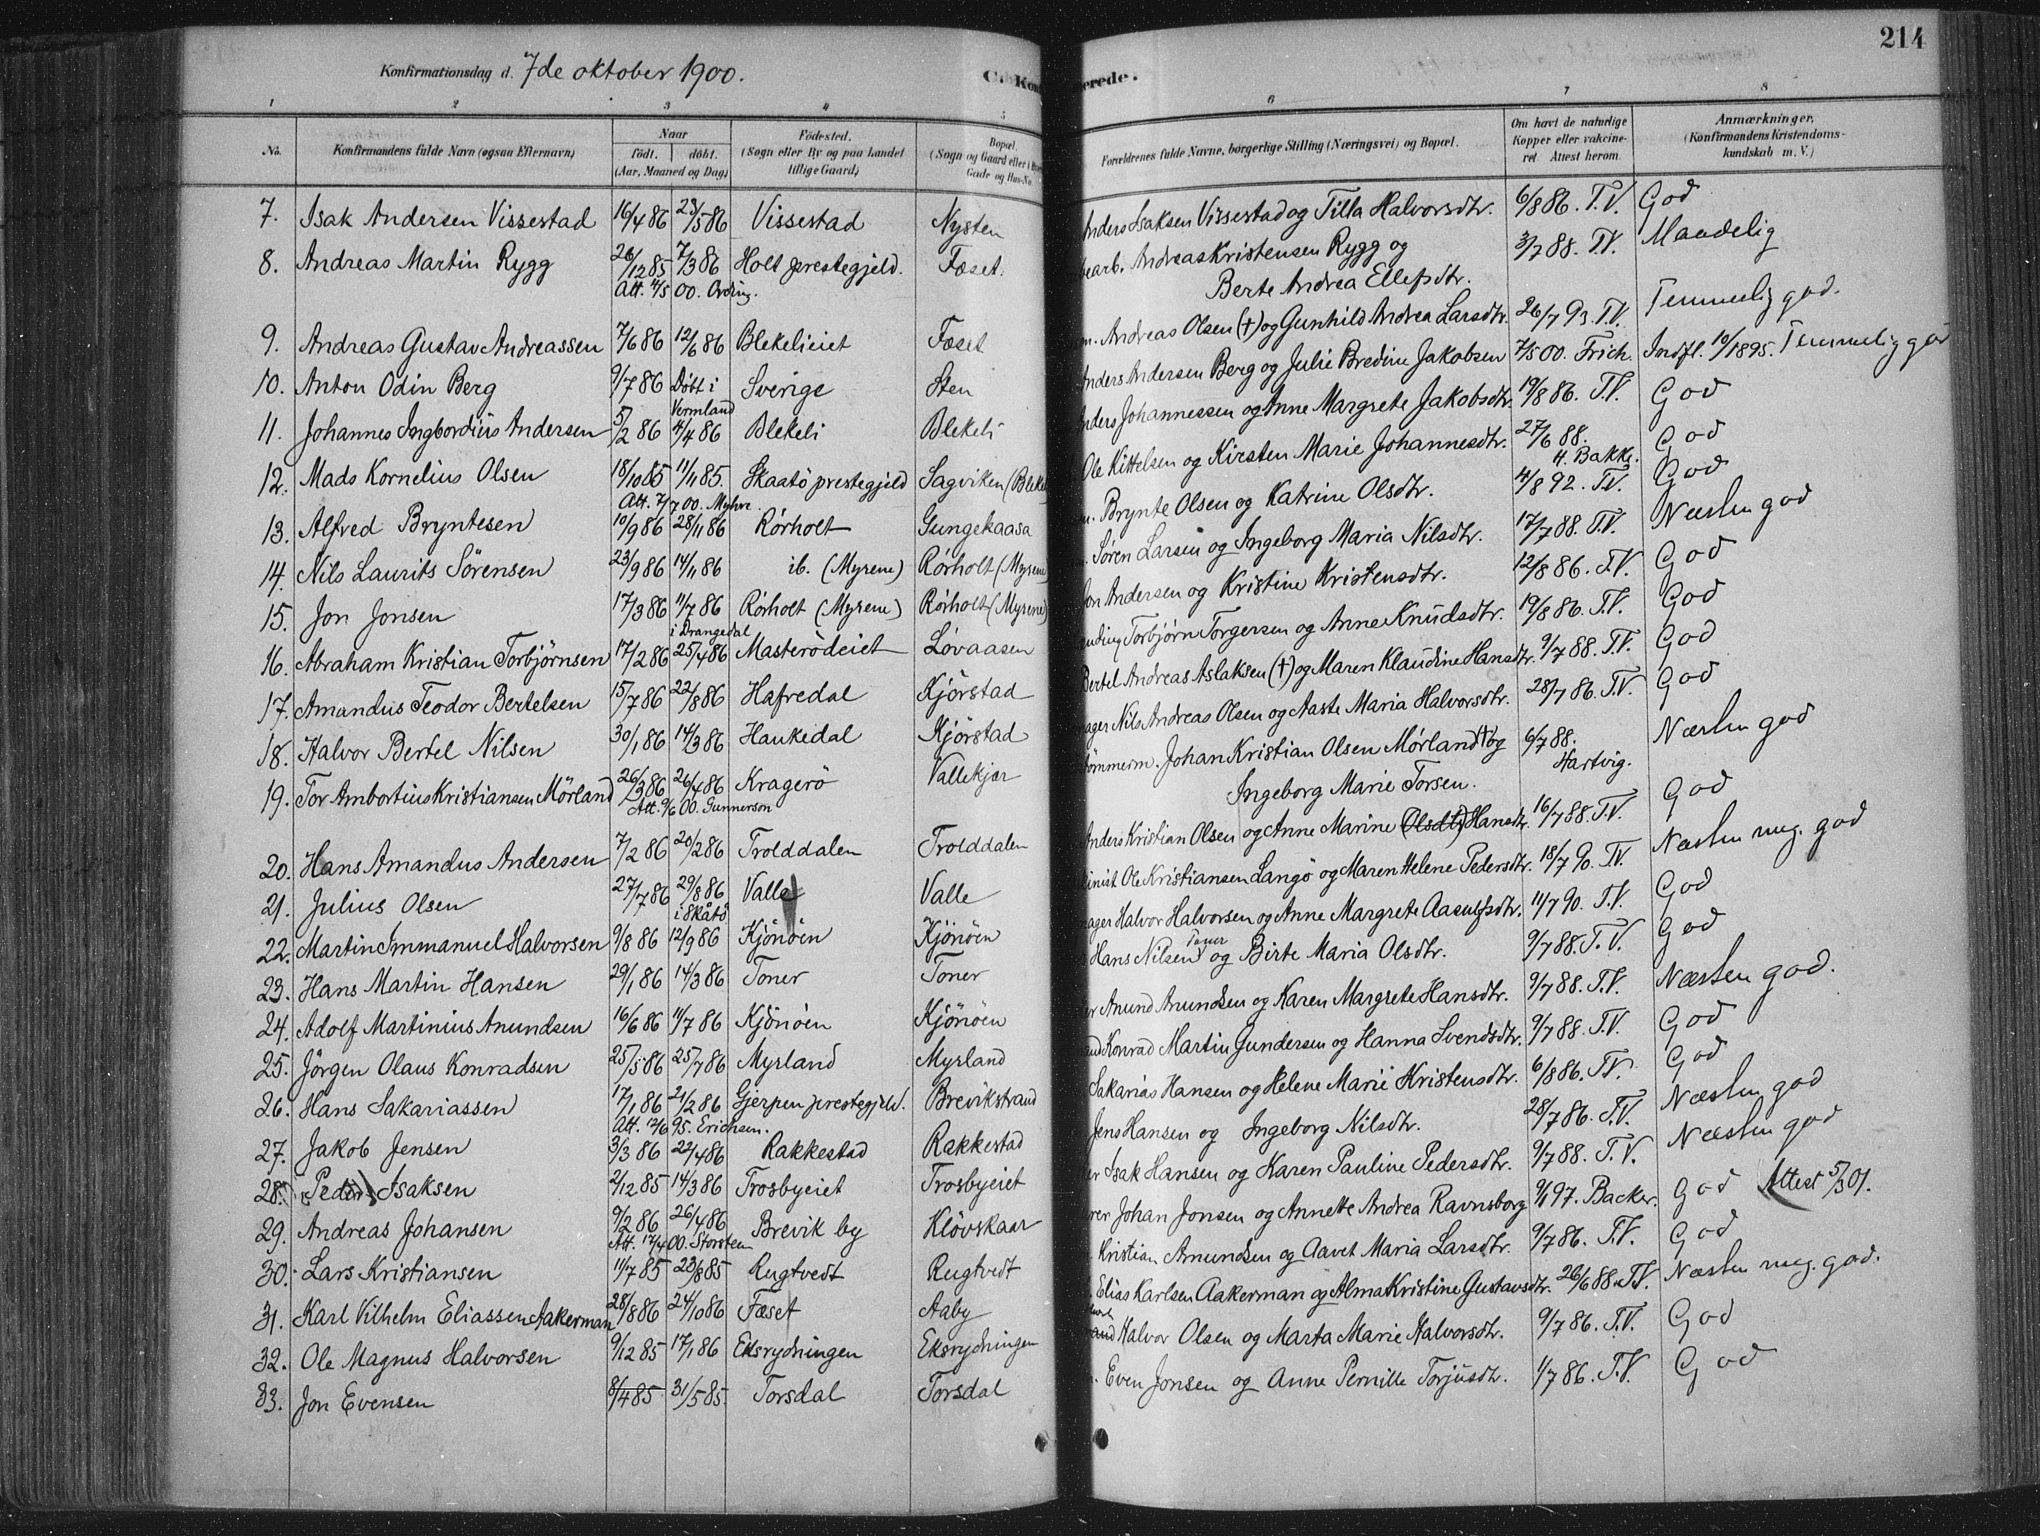 214
Konfirmationsdag d. 7de oktober 1900.
C. Kon
erede.
1 2 3 4 5 6 7 8
No. Konfirmandens fulde Navn (ogsaa Efternavn) Naar født. døbt. (Aar, Maaned og Dag) Fødested. (Sogn eller By og paa Landet tillige Gaard) Bopæl. (Sogn og Gaard eller i Gade og Hus-No. Forældrenes fulde Navne, borgerlige Stilling (Næringsvei) og Bopæl. Om havt de naturlige Kopper eller vakcineret Attest herom. Anmærkninger. (Konfirmandens Kristendomskundskab m. V.)
7. Isak Andersen Vissestad 16/4 86 23/5 86 Vissestad Nysten Anders Isaksen Vissestad og Tilla Halvorsdtr. 6/8 86. T.V. God
8. Andreas Martin Rygg 26/12 85 7/3 86 Holt prestegjeld. Fæset. bearb. Andreas Kristensen Rygg og 3/7 88. T.V. Maadelig
Att. 4/5 00. Ording. Berte Andrea Ellefsdtr.
9. Andreas Gustav Andreassen 7/6 86 12/6 86 Blekelieiet Fæset m. Andreas Olsen (†) og Gunhild Andrea Larsdtr. 26/7 93. T.V. Temmelig god.
10. Anton Odin Berg 9/7 86 Døbt i Vermland Sverige Sten Anders Andersen Berg og Julie Bredine Jakobsen 7/5 00. Frich. Indfl. 10/1895. Temmelig god
11. Johannes Ingbordius Andersen 5/2 86 4/4 86 Blekeli Blekeli Anders Johannessen og Anne Margrete Jakobsdtr. 19/8 86. T.V. God
12. Mads Kornelius Olsen 18/10 85 11/11 85. Skaatö prestegjeld Sagviken (Blekeli Ole Kittelsen og Kirsten Marie Johannesdtr. 27/6 88. H. Bakke. God
Att. 7/7 00. Myhre.
13. Alfred Bryntesen 10/9 86 28/11 86 Rörholt Gungekaasa m. Brynte Olsen og Katrine Olsdtr. 4/8 92. T.V. God
14. Nils Laurits Sörensen 23/9 86 14/11 86 ib. (Myrene) Rörholt (Myrene) Søren Larsen og Ingeborg Maria Nilsdtr. 17/7 88. T.V. Næsten god
15. Jon Jonsen 17/3 86 11/7 86 i Drangedal Rörholt (Myrene) Rörholt (Myrene) Jon Andersen og Kristine Kristensdtr. 12/8 86. T.V. God
16. Abraham Kristian Torbjörnsen 17/2 86 25/4 86 Masterödeiet Lövaasen Torbjørn Torgersen og Anne Knudsdtr. 19/8 86. T.V. God
17. Amandus Teodor Bertelsen 15/7 86 22/8 86 Hafredal Kjörstad Bertel Andreas Aslaksen (†) og Maren Klaudine Hansdtr. 9/7 88. T.V. God
18. Halvor Bertel Nilsen 30/1 86 14/3 86 Haukedal Kjörstad mager Nils Andreas Olsen og Aaste Maria Halvorsdtr. 28/7 86. T.V. God
19. Tor Ambortius Kristiansen Mörland 26/3 86 26/4 86 Kragerö Vallekjær tömmerm. Johan Kristian Olsen Mørland (†) og 6/7 88. Hartvig. Næsten god
Att. 9/6 00. Gunnerson Ingeborg Marie Torsen.
20. Hans Amandus Andersen 7/2 86 20/2 86 Trolddalen Trolddalen Anders Kristian Olsen og Anne Marine (Olsdtr.) Hansdtr. 16/7 88. T.V. God
21. Julius Olsen 27/7 86 29/8 86 i Skåtö Valle Valle Ole Kristiansen Langø og Maren Helene Pedersdtr. 18/7 90. T.V. Næsten meg. god
22. Martin Immanuel Halvorsen 9/8 86 12/9 86 Kjönöen Kjönöen mager Halvor Halvorsen og Anne Margrete Aasulfsdtr. 11/7 90. T.V. God
23. Hans Martin Hansen 29/1 86 14/3 86 Toner Toner Hans Nilsen Toner og Birte Maria Olsdtr. 9/7 88. T.V. God
24. Adolf Martinius Anundsen 16/6 86 11/7 86 Kjönöen Kjönöen er Anund Anundsen og Karen Margrete Hansdtr. 9/7 88. T.V. Næsten god.
25. Jörgen Olaus Konradsen 25/5 86 25/7 86 Myrland Myrland Konrad Martin Gundersen og Hanna Svendsdtr. 9/7 88. T.V. God
26. Hans Sakariassen 17/1 86 21/2 86 Gjerpen prestegjeld. Brevikstrand Sakarias Hansen og Helene Marie Kristensdtr. 6/8 86. T.V. God
Att. 12/6 95. Erichsen.
27. Jakob Jensen 3/3 86 22/4 86 Rakkestad Rakkestad Jens Hansen og Ingeborg Nilsdtr. 28/7 86. T.V. Næsten god
28. (Peder) Isaksen 2/12 85 14/3 86 Trosbyeiet Trosbyeiet er Isak Hansen og Karen Pauline Pedersdtr. 9/7 88. T.V. Næsten god
29. Andreas Johansen 9/2 86 26/4 86 Brevik by Klövskaar rer Johan Jonsen og Annette Andrea Ravnsborg 9/1 97. Backer. God Attest 5/3 01.
Att. 17/4 00. Storsten
30. Lars Kristiansen 11/7 85 23/8 85 Rugtvedt Rugtvedt Kristian Amundsen og Aavet Maria Larsdtr. 9/7 86. T.V. God
31. Karl Vilhelm Eliassen Aakerman 28/8 86 24/10 86 Fæset Aaby Elias Karlsen Aakerman og Alma Kristine Gustavsdtr. 26/6 88. T.V. Næsten meg. god.
32. Ole Magnus Halvorsen 9/12 85 17/1 86 Eksrydningen Eksrydningen Halvor Olsen og Marta Marie Halvorsdtr. 9/7 86. T.V. God
33. Jon Evensen 8/4 85 31/5 85. Torsdal Torsdal Even Jonsen og Anne Pernille Torjusdtr. 1/7 86. T.V. God